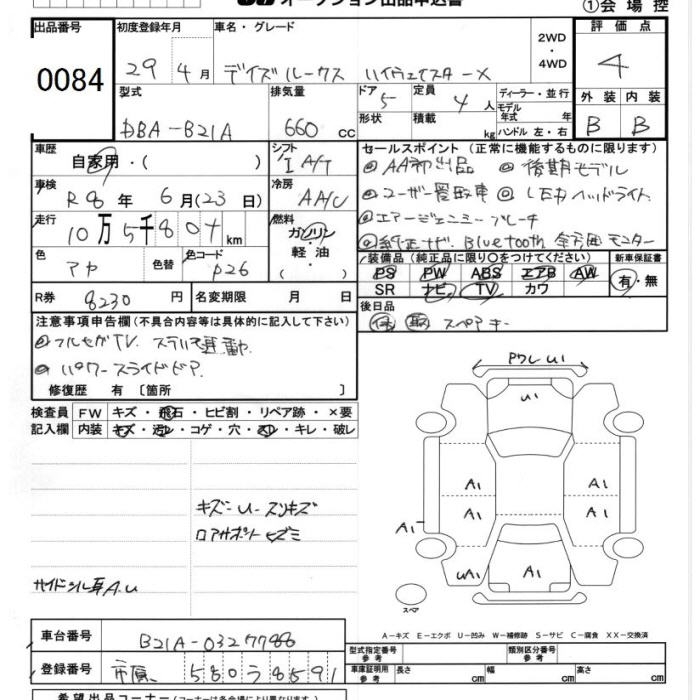 オークション出品申込書
①会場控
出品番号
0084
初度登録年月
29年4月
車名・グレード
デイズルークス ハイウェイスターX
2WD・4WD
評価点
4
型式
DBA-B21A
排気量
660 cc
ドア 5
形状
定員 4 人
積載 kg
ディーラー・並行
モデル年式 年式
ハンドル 左・右
外装 内装
B B
車歴
自家用・( )
シフト
I A/T
セールスポイント (正常に機能するものに限ります)
AA初出品
後期モデル
車検
R8年 6月(23日)
冷房
AA/C
ユーザー買取車
LEDヘッドライト
エマージェンシーブレーキ
走行
10万5千804 km
燃料
ガソリン・軽油
純正ナビ Bluetooth 全方囲モニター
色
色替
色コード P26
装備品 (純正品に限り○をつけてください)
新車保証書
PS PW ABS エアB AW
SR ナビ TV カワ
有・無
R券 8230 円
名変期限 月 日
後日品
保 取 スペアキー
注意事項申告欄 (不具合内容等は具体的に記入して下さい)
フルセグTV
パワースライドドア
修復歴 有 〔箇所 〕
検査員記入欄
FW キズ・飛石・ヒビ割・リペア跡・×要
内装 キズ・汚レ・コゲ・穴・スレ・キレ・破レ
キズ U スリキズ
ロアサポートヒズミ
A.U
PワレU1
U1
A1
A1
A1
A1
A1
UA1
A1
スペア
A-キズ E-エクボ U-凹み W-補修跡 S-サビ C-腐食 XX-交換済
車台番号
B21A-0327788
登録番号
市原 580う8591
型式指定番号 参考
類別区分番号 参考
車庫証明用 参考
長さ cm 幅 cm 高さ cm
希望出品コーナー